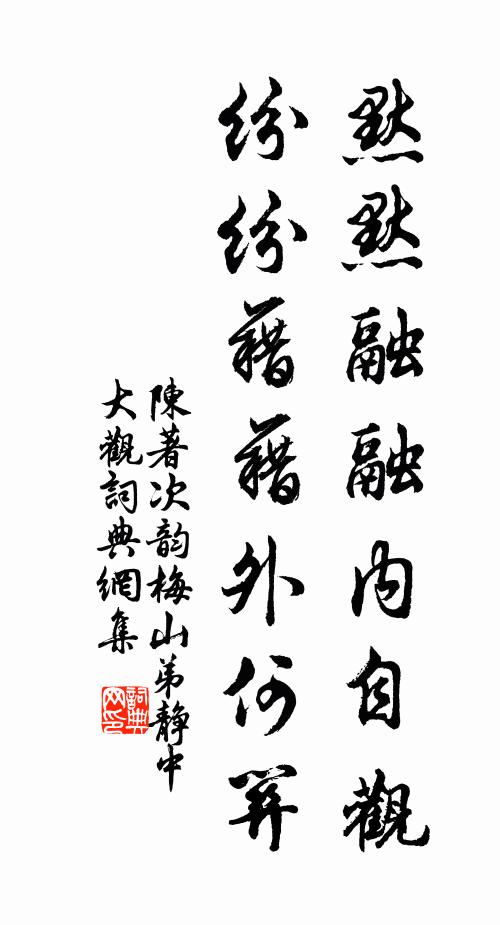 默默融融內自觀
紛紛藉藉外何關
陳著次韵梅山弟靜中
大觀詞典網集
詞典
网印